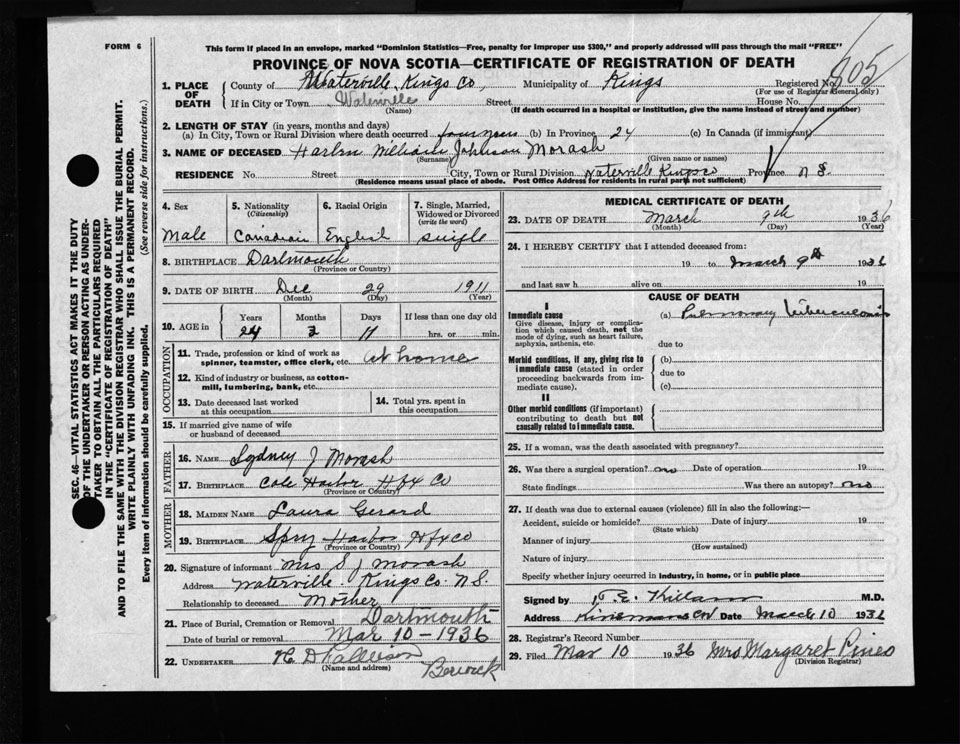 FORM 6
This form if placed in an envelope, marked "Dominion Statistics—Free, penalty for improper use $300," and properly addressed will pass through the mail "FREE"
PROVINCE OF NOVA SCOTIA—CERTIFICATE OF REGISTRATION OF DEATH
SEC. 46—VITAL STATISTICS ACT MAKES IT THE DUTY
OF THE UNDERTAKER OR PERSON ACTING AS UNDER-
TAKER TO OBTAIN ALL THE PARTICULARS REQUIRED
IN THE "CERTIFICATE OF REGISTRATION OF DEATH"
AND TO FILE THE SAME WITH THE DIVISION REGISTRAR WHO SHALL ISSUE THE BURIAL PERMIT.
WRITE PLAINLY WITH UNFADING INK. THIS IS A PERMANENT RECORD.
Every item of information should be carefully supplied. (See reverse side for instructions.)
1. PLACE OF DEATH
County of Waterville, Kings Co, Municipality of Kings Registered No. 805
(For use of Registrar General only)
If in City or Town Waterville Street House No.
(Name) (If death occurred in a hospital or institution, give the name instead of street and number)
2. LENGTH OF STAY (in years, months and days)
(a) In City, Town or Rural Division where death occurred four years (b) In Province 24 (c) In Canada (if immigrant)
3. NAME OF DECEASED Harlen William Johnson Morash
(Surname) (Given name or names)
RESIDENCE No. Street City, Town or Rural Division Waterville Kings co Province N S.
(Residence means usual place of abode. Post Office Address for residents in rural parts not sufficient)
4. Sex Male
5. Nationality (Citizenship) Canadian
6. Racial Origin English
7. Single, Married, Widowed or Divorced (write the word) single
8. BIRTHPLACE Dartmouth
(Province or Country)
9. DATE OF BIRTH Dec 29 1911
(Month) (Day) (Year)
10. AGE in Years Months Days If less than one day old
24 11 hrs. or min.
OCCUPATION
11. Trade, profession or kind of work as spinner, teamster, office clerk, etc. at home
12. Kind of industry or business, as cotton-mill, lumbering, bank, etc.
13. Date deceased last worked at this occupation
14. Total yrs. spent in this occupation
15. If married give name of wife or husband of deceased
FATHER
16. NAME Sydney J Morash
17. BIRTHPLACE Cole Harbor Hfx Co
(Province or Country)
MOTHER
18. MAIDEN NAME Laura Gerard
19. BIRTHPLACE Spry Harbor Hfx co
(Province or Country)
20. Signature of informant Mrs S J Morash
Address Waterville Kings Co. N.S.
Relationship to deceased Mother
21. Place of Burial, Cremation or Removal Dartmouth
Date of burial or removal Mar 10-1936
22. UNDERTAKER Berwick
(Name and address)
MEDICAL CERTIFICATE OF DEATH
23. DATE OF DEATH March 9th 1936
(Month) (Day) (Year)
24. I HEREBY CERTIFY that I attended deceased from:
19 to March 9th 1936
and last saw h alive on 19
CAUSE OF DEATH
I
Immediate cause
Give disease, injury or complication which caused death, not the mode of dying, such as heart failure, asphyxia, asthenia, etc.
(a) Pulmonary Tuberculosis
due to
Morbid conditions, if any, giving rise to immediate cause (stated in order proceeding backwards from immediate cause).
(b)
due to
(c)
II
Other morbid conditions (if important) contributing to death but not causally related to immediate cause.
25. If a woman, was the death associated with pregnancy?
26. Was there a surgical operation? no Date of operation 19
State findings Was there an autopsy? no
27. If death was due to external causes (violence) fill in also the following:—
Accident, suicide or homicide? Date of injury 19
(State which)
Manner of injury
(How sustained)
Nature of injury
Specify whether injury occurred in industry, in home, or in public place
Signed by Killam M.D.
Address Date March 10 1936
28. Registrar's Record Number
29. Filed Mar 10 1936 Mrs Margaret Pineo
(Division Registrar)